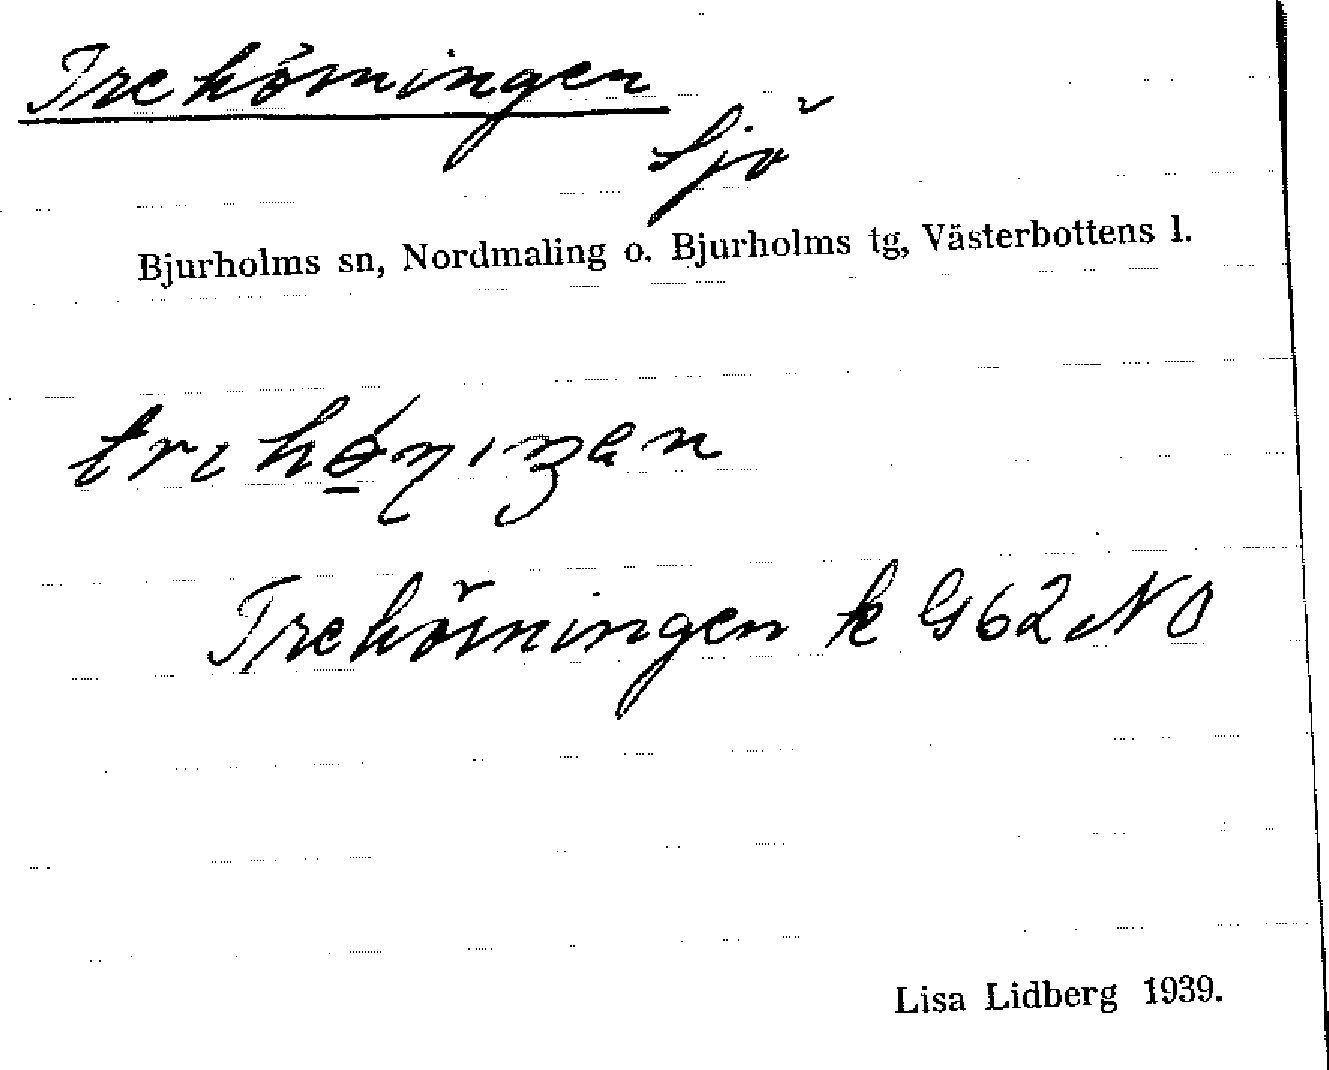 Trehörningen
sjö
Bjurholms sn, Nordmaling o. Bjurholms tg, Västerbottens l.
Trehörningen k G62NO
Lisa Lidberg 1939.